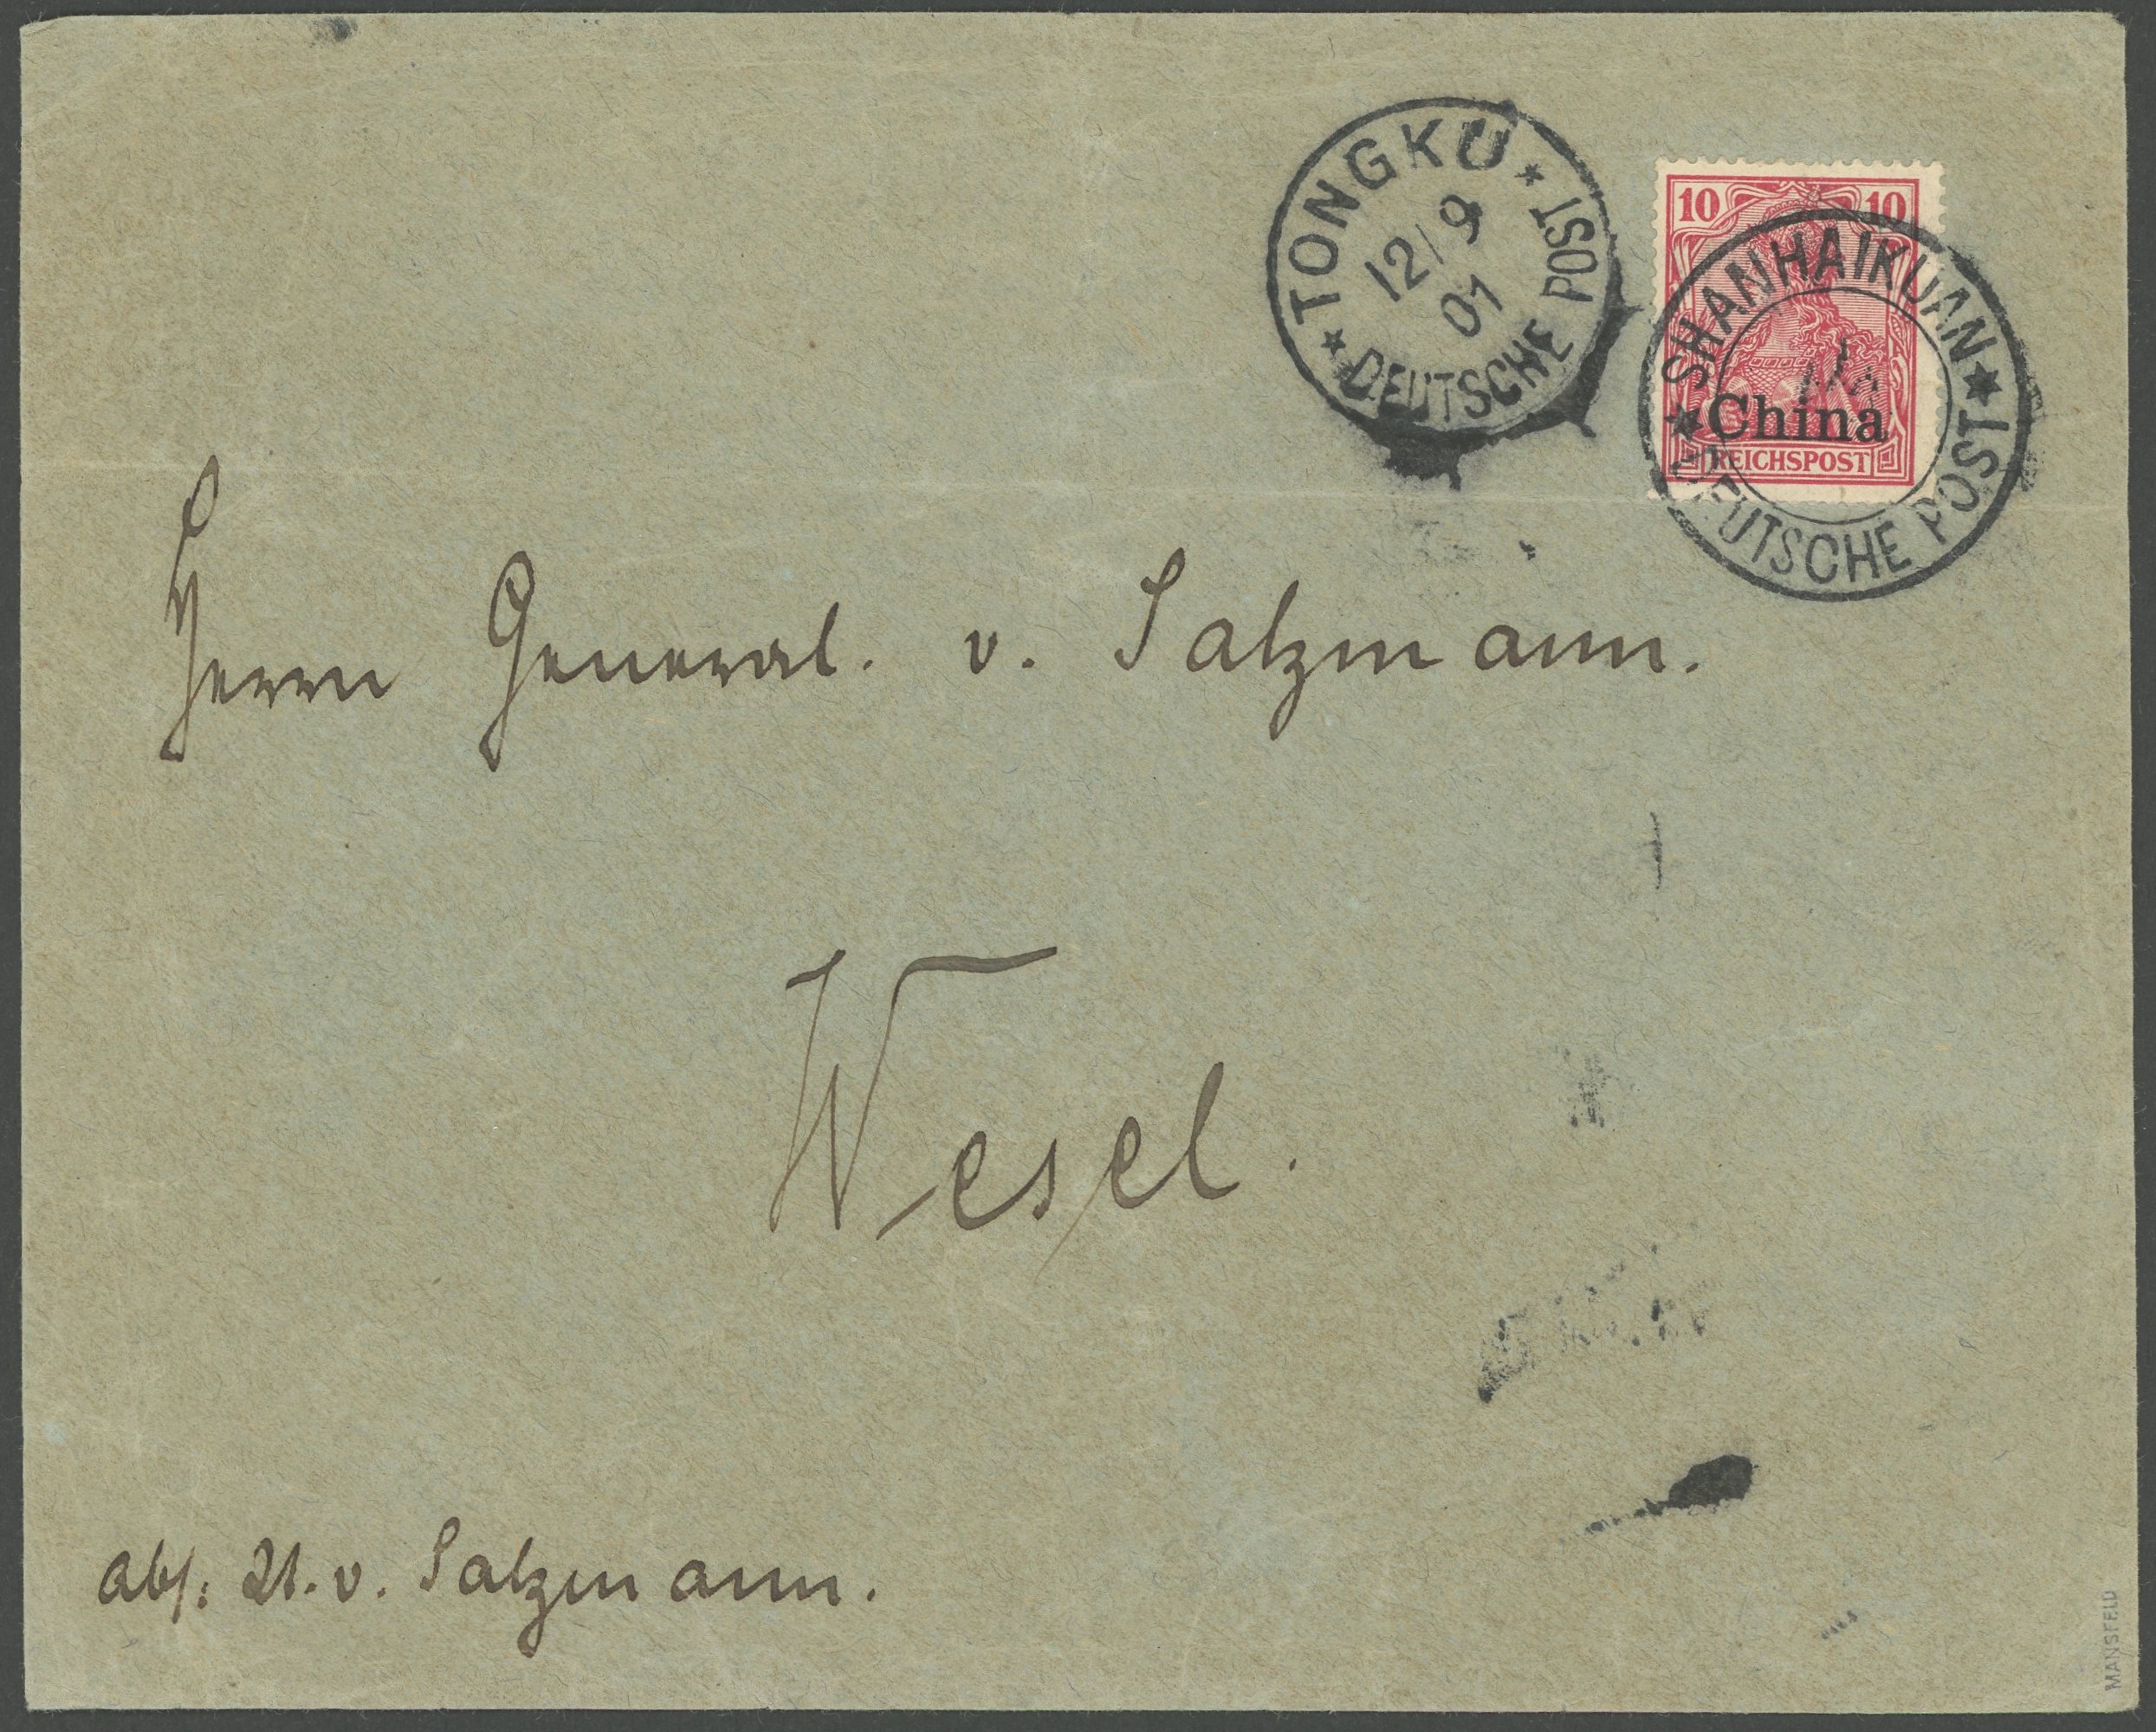 TONGKU
12/9
01
DEUTSCHE POST
10 10
China
REICHSPOST
SHANHAIKUAN
DEUTSCHE POST
Herrn General. v. Salzmann.
Wesel.
Abs: Lt. v. Salzmann.
MANSFELD